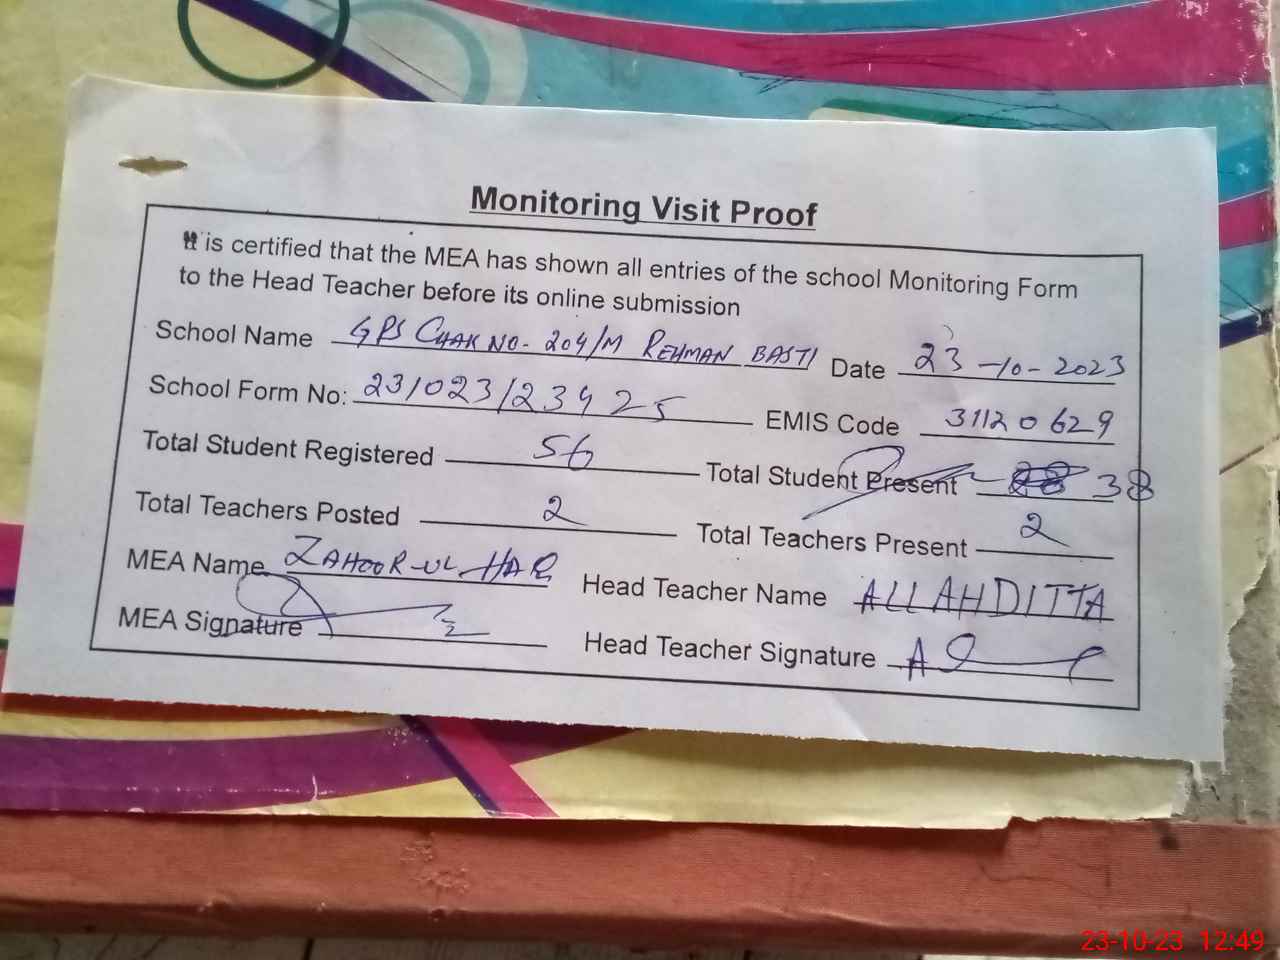 Monitoring Visit Proof
It is certified that the MEA has shown all entries of the school Monitoring Form
to the Head Teacher before its online submission
School Name GPS CHAK NO. 204/M REHMAN BASTI Date 23-10-2023
School Form No: 231023/23425 EMIS Code 31120629
Total Student Registered 56 Total Student Present 38
Total Teachers Posted 2 Total Teachers Present 2
MEA Name ZAHOOR-UL-HAQ Head Teacher Name ALLAH DITTA
MEA Signature Head Teacher Signature
23-10-23 12:49